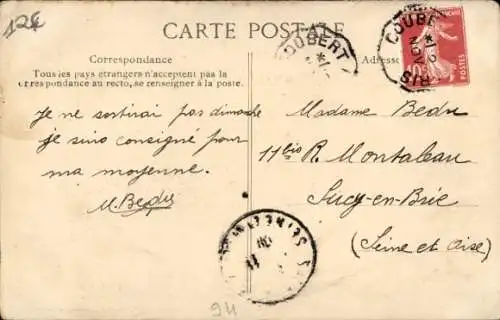 12€
CARTE POSTALE
Correspondance
Tous les pays étrangers n'acceptent pas la
correspondance au recto, se renseigner à la poste.
Je ne sortirai pas dimanche
je suis consigné pour
ma moyenne.
M. Bedu
Adresse
Madame Bedu
11 bis R. Montaleau
Sucy-en-Brie
(Seine et Oise)
COUBERT
COUBE
NOV
POSTES
94